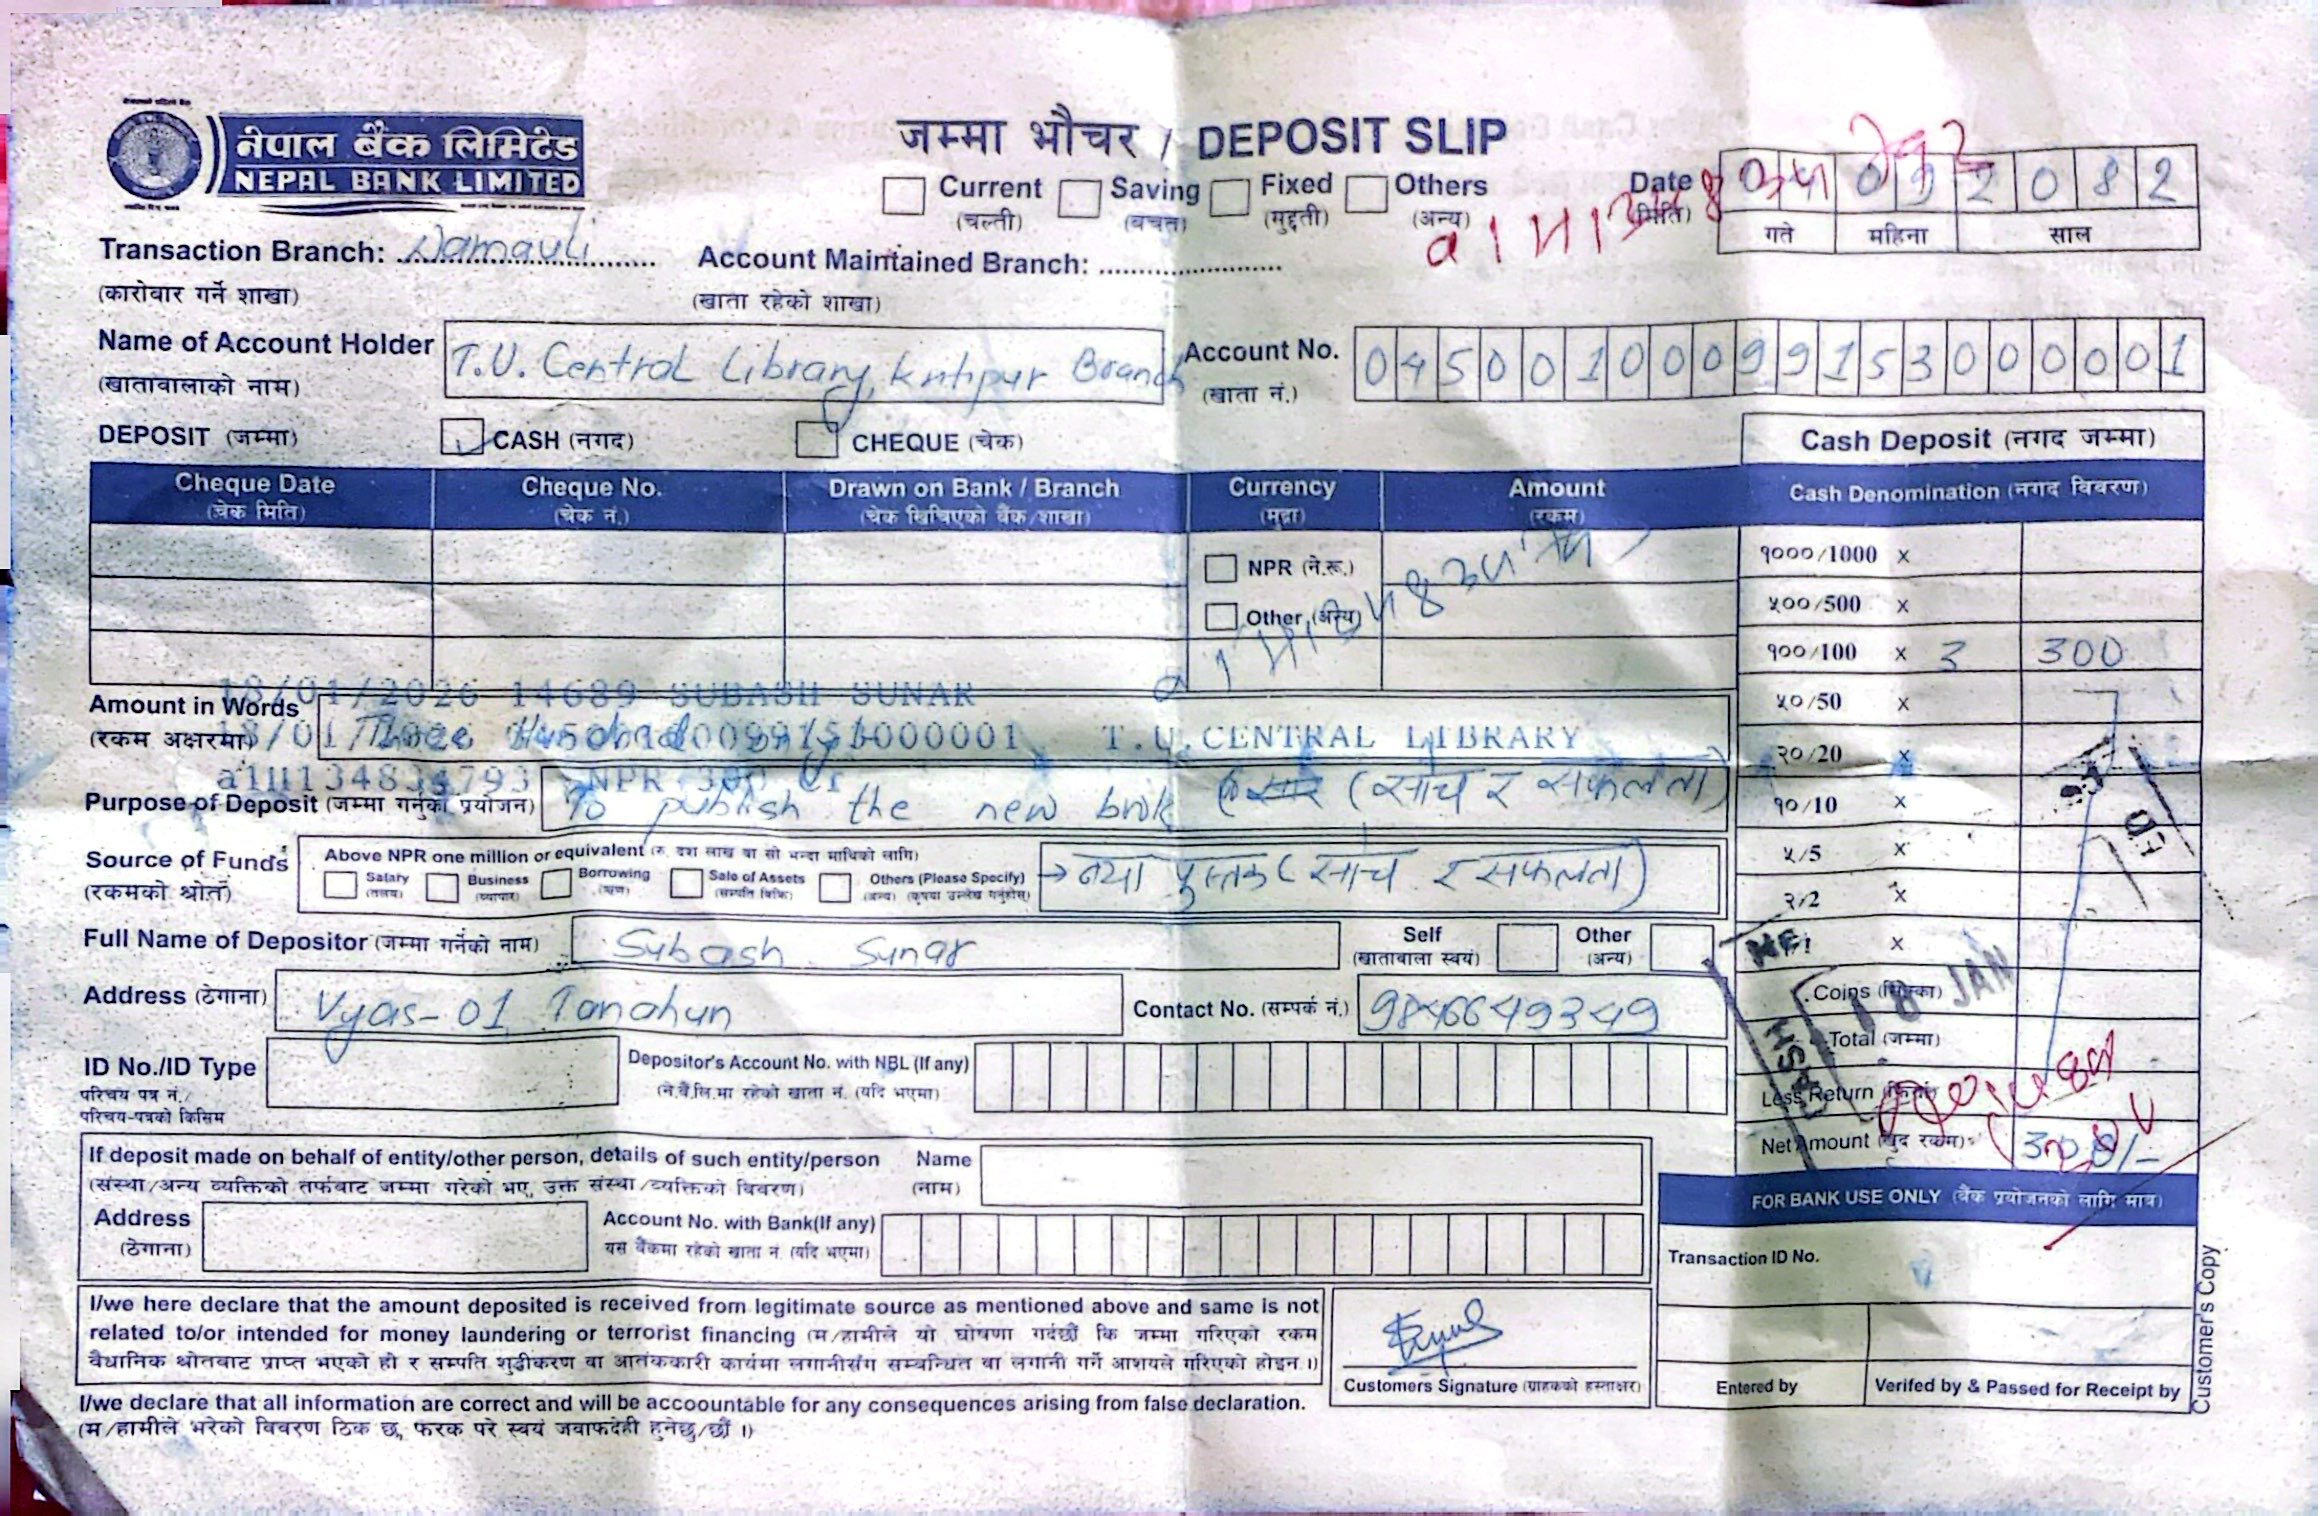 नेपाल बैंक लिमिटेड
NEPAL BANK LIMITED
जम्मा भौचर / DEPOSIT SLIP
Current Saving Fixed Others
(चल्ती) (बचत) (मुद्दती) (अन्य)
Date (मिति) 2 0 8 2
गते महिना साल
Transaction Branch: Damauli Account Maintained Branch:
(कारोवार गर्ने शाखा) (खाता रहेको शाखा)
Name of Account Holder T.U. Central Library, Kritipur Branch Account No. 04500100099153000001
(खातावालाको नाम) (खाता नं.)
DEPOSIT (जम्मा) CASH (नगद) CHEQUE (चेक) Cash Deposit (नगद जम्मा)
Cheque Date Cheque No. Drawn on Bank / Branch Currency Amount Cash Denomination (नगद विवरण)
(चेक मिति) (चेक नं.) (चेक खिचिएको बैंक/शाखा) (मुद्रा) (रकम)
NPR (ने.रू.) १०००/1000 x
Other (अन्य) ५००/500 x
१००/100 x 3 300
18/01/2026 14689 SUBASH SUNAR
Amount in Words Three Hundred only ५०/50 x
(रकम अक्षरमा) T.U.CENTRAL LIBRARY २०/20 x
NPR 300 Cr
Purpose of Deposit (जम्मा गर्नुको प्रयोजन) To publish the new book (सोच र सफलता) १०/10 x
Source of Funds Above NPR one million or equivalent (रु. दश लाख वा सो भन्दा माथिको लागि) → नया पुस्तक (सोच र सफलता) ५/5 x
(रकमको श्रोत) Salary Business Borrowing Sale of Assets Others (Please Specify)
(तलव) (व्यापार) (ऋण) (सम्पति बिक्रि) (अन्य) (कृपया उल्लेख गर्नुहोस्) २/2 x
Full Name of Depositor (जम्मा गर्नेको नाम) Subash Sunar Self Other x
(खातावाला स्वयं) (अन्य)
18 JAN
Address (ठेगाना) Vyas-01, Tanahun Contact No. (सम्पर्क नं.) 9846649349 Coins (सिक्का)
Total (जम्मा)
ID No./ID Type Depositor's Account No. with NBL (If any)
परिचय पत्र नं./ (ने.बैं.लि.मा रहेको खाता नं. (यदि भएमा) Less Return
परिचय-पत्रको किसिम
If deposit made on behalf of entity/other person, details of such entity/person Name Net Amount (खुद रकम) 300/-
(संस्था/अन्य व्यक्तिको तर्फबाट जम्मा गरेको भए, उक्त संस्था/व्यक्तिको विवरण) (नाम)
FOR BANK USE ONLY (बैंक प्रयोजनको लागि मात्र)
Address Account No. with Bank(If any)
(ठेगाना) यस बैंकमा रहेको खाता नं. (यदि भएमा)
Transaction ID No.
I/we here declare that the amount deposited is received from legitimate source as mentioned above and same is not
related to/or intended for money laundering or terrorist financing (म/हामीले यो घोषणा गर्दछौं कि जम्मा गरिएको रकम
वैधानिक श्रोतबाट प्राप्त भएको हो र सम्पति शुद्धीकरण वा आतंककारी कार्यमा लगानीसंग सम्बन्धित वा लगानी गर्ने आशयले गरिएको होइन।)
Customers Signature (ग्राहकको हस्ताक्षर) Entered by Verifed by & Passed for Receipt by
I/we declare that all information are correct and will be accoountable for any consequences arising from false declaration.
(म/हामीले भरेको विवरण ठिक छ, फरक परे स्वयं जवाफदेही हुनेछु/छौं।)
Customer's Copy